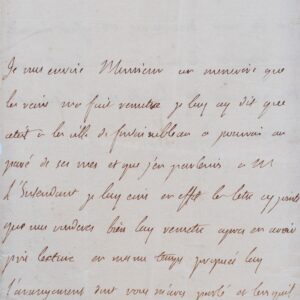 Je vous envoie Monsieur un memoire que
les veuve ma fait remettre je luy ay dit que
cetoit a la ville de fontainebleau a pourvoir au
pavé de ses rues et que j'en parlerois a M
L'Intendant je luy ecris en effet la lettre cy jointe
que vous voudrez bien luy remettre apres en avoir
pris lecture en meme temps
l'arrangement dont vous m'avez parlé et lorsqu'il